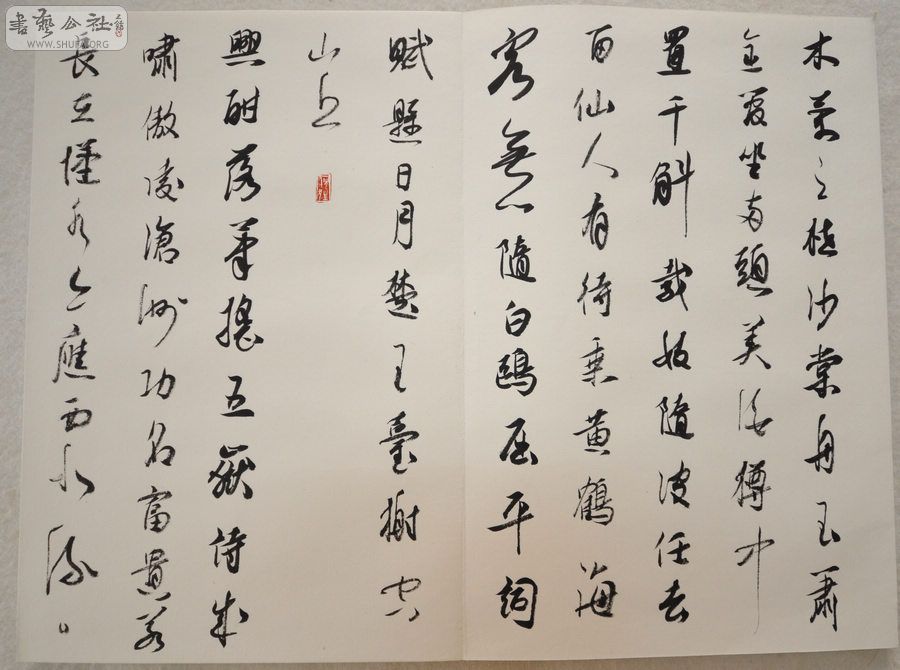 書藝公社
WWW.SHUFA.ORG
木蘭之枻沙棠舟玉簫
金管坐兩頭美酒樽中
置千斛載妓隨波任去
留仙人有待乘黃鶴海
客無心隨白鷗屈平詞
賦縣日月楚王臺榭空
山丘
興酣落筆搖五嶽詩成
嘯傲凌滄洲功名富貴若
長在漢水亦應西北流